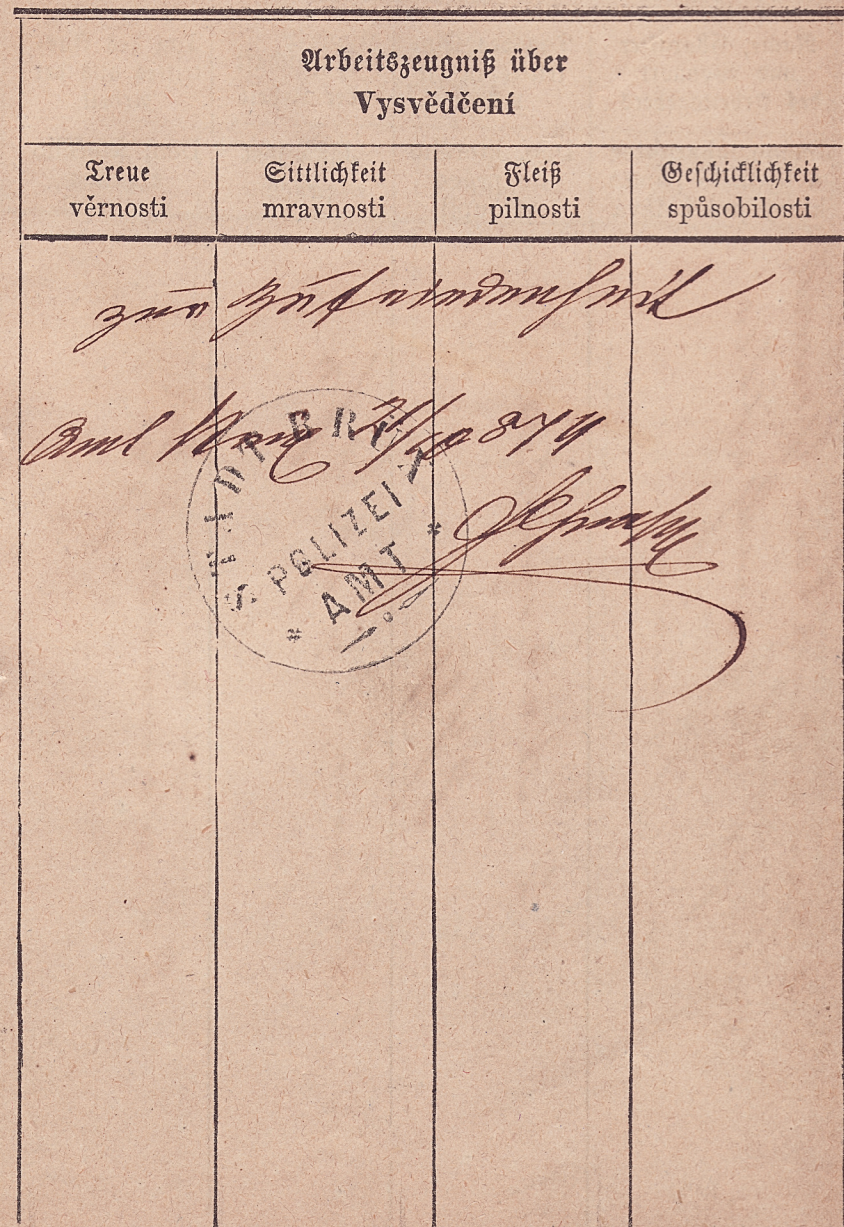 Arbeitszeugniß über
Vysvědčení
Treue
věrnosti
Sittlichkeit
mravnosti
Fleiß
pilnosti
Geschicklichkeit
spůsobilosti
zur Zufriedenheit
Amt Brüx 874
STADT BRÜX
POLIZEI
AMT